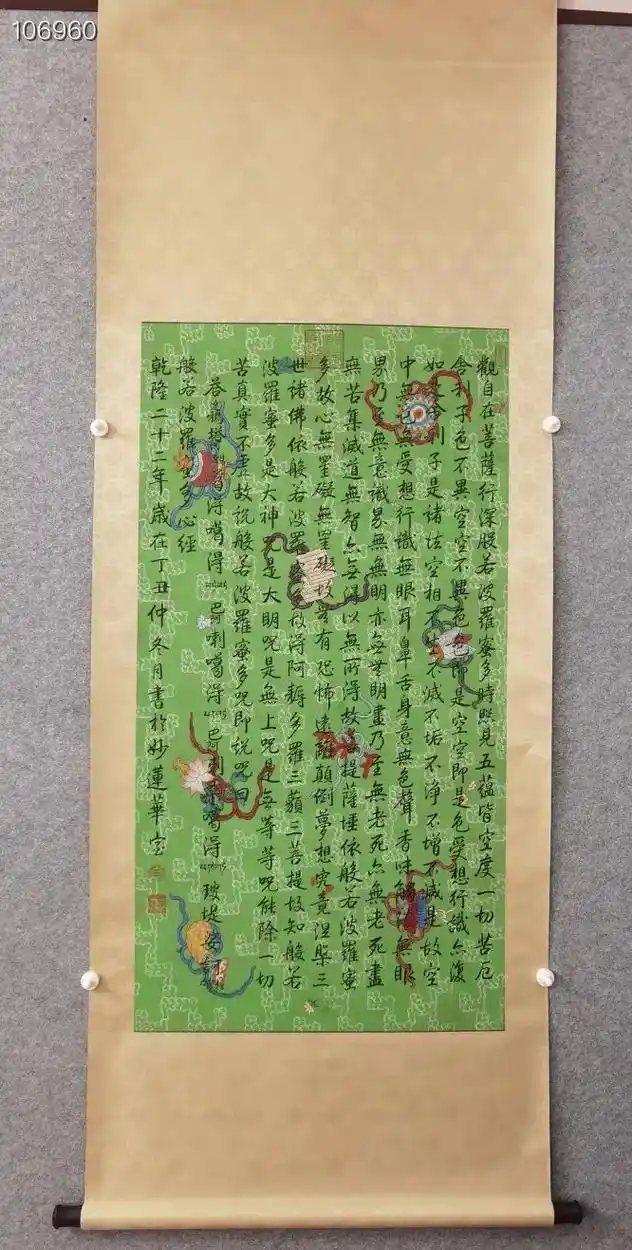 106960
觀自在菩薩行深般若波羅蜜多時照見五蘊皆空度一切苦厄
舍利子色不異空空不異色色即是空空即是色受想行識亦復
如是舍利子是諸法空相不生不滅不垢不淨不增不減是故空
中無色無受想行識無眼耳鼻舌身意無色聲香味觸法無眼
界乃至無意識界無無明亦無無明盡乃至無老死亦無老死盡
無苦集滅道無智亦無得以無所得故菩提薩埵依般若波羅蜜
多故心無罣礙無罣礙故無有恐怖遠離顛倒夢想究竟涅槃三
世諸佛依般若波羅蜜多故得阿耨多羅三藐三菩提故知般若
波羅蜜多是大神呪是大明呪是無上呪是無等等呪能除一切
苦真實不虛故說般若波羅蜜多呪即說呪曰
噶得噶得 巴喇噶得 巴喇 噶得 玻提娑
般若波羅蜜多心經
乾隆二十二年歲在丁丑仲冬月書於妙蓮華室